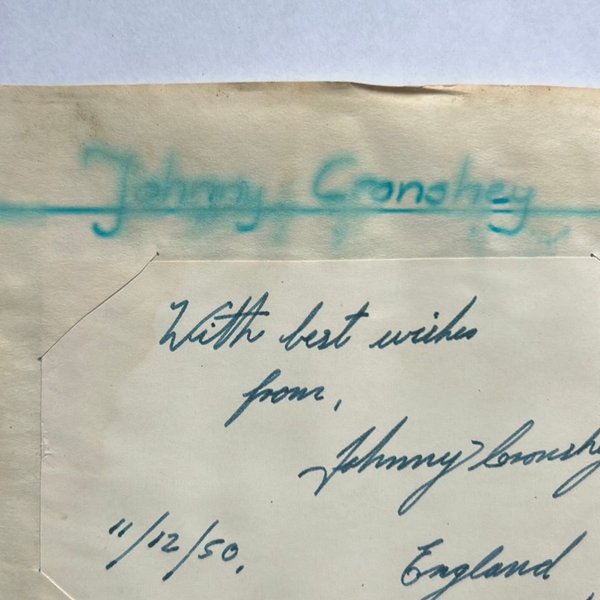 Johnny Cronshey
With best wishes
from,
Johnny Cronshey
11/12/50,
England